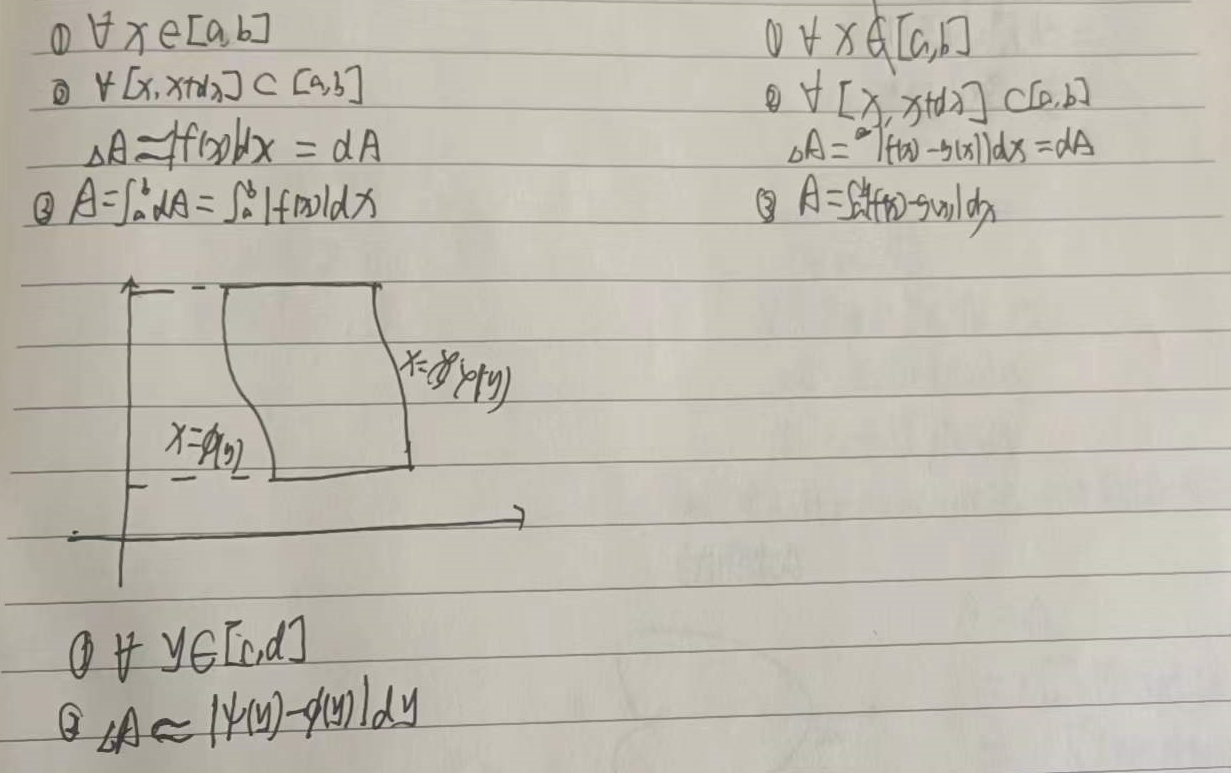 ① ∀ x ∈ [a,b]
② ∀ [x, x+dx] ⊂ [a,b]
ΔA ≈ |f(x)|dx = dA
③ A = ∫ₐᵇ dA = ∫ₐᵇ |f(x)|dx
① ∀ x ∈ [a,b]
② ∀ [x, x+dx] ⊂ [a,b]
ΔA = |f(x) - g(x)|dx = dA
③ A = ∫ₐᵇ |f(x) - g(x)|dx
x = ψ(y)
x = φ(y)
① ∀ y ∈ [c,d]
② ΔA ≈ |ψ(y) - φ(y)|dy